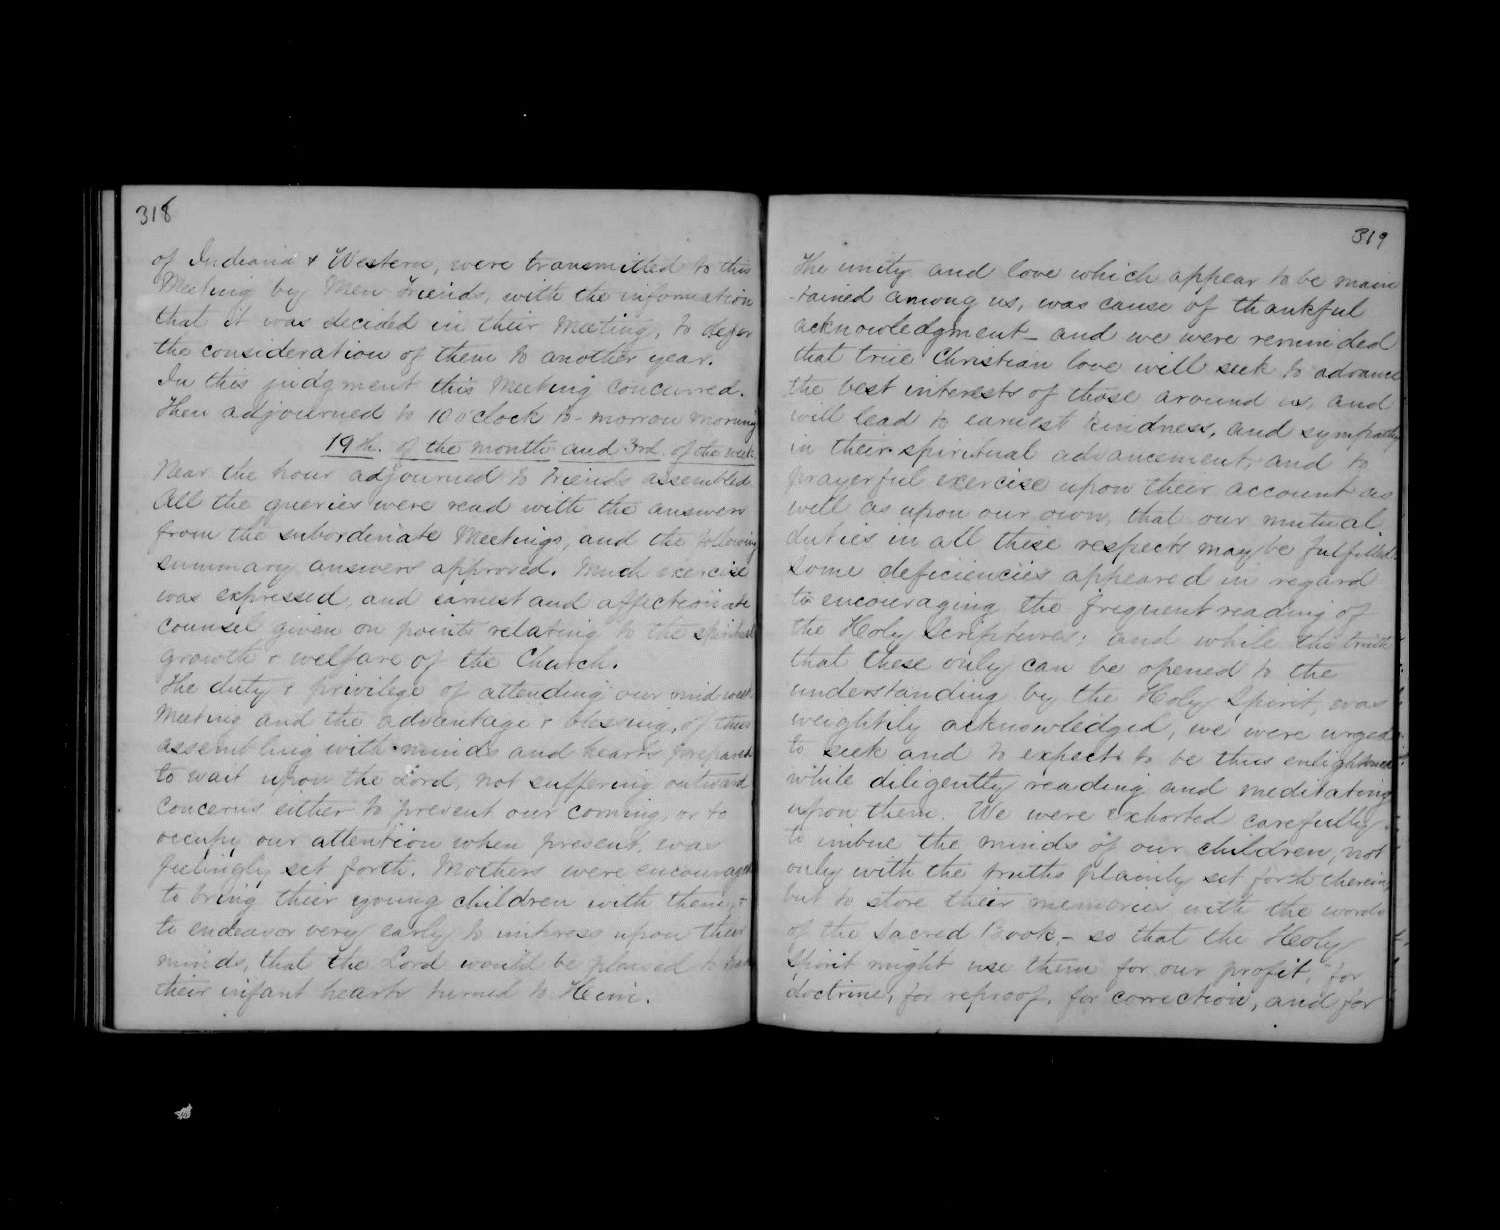 318
of Indiana & Western, were transmitted to this
Meeting by Men Friends, with the information
that it was decided in their Meeting, to defer
the consideration of them to another year.
In this judgment this Meeting concurred.
Then adjourned to 10 o'clock to-morrow morning
19th. of the month and 3rd. of the week.
Near the hour adjourned to Friends assembled.
All the queries were read with the answers
from the subordinate Meetings, and the following
summary answers approved. Much exercise
was expressed, and earnest and affectionate
counsel given on points relating to the spiritual
growth & welfare of the Church.
The duty & privilege of attending our mid-week
Meeting and the advantage & blessing, of thus
assembling with minds and hearts prepared
to wait upon the Lord, not suffering outward
concerns either to prevent our coming, or to
occupy our attention when present, was
feelingly set forth. Mothers were encouraged
to bring their young children with them, &
to endeavor very early to impress upon their
minds, that the Lord would be pleased to have
their infant hearts turned to Him.
319
The unity and love which appear to be main
-tained among us, was cause of thankful
acknowledgment - and we were reminded
that true Christian love will seek to advance
the best interests of those around us, and
will lead to earnest kindness, and sympathy
in their spiritual advancement, and to
prayerful exercise upon their account as
well as upon our own, that our mutual
duties in all these respects may be fulfilled.
Some deficiencies appeared in regard
to encouraging the frequent reading of
the Holy Scriptures; and while the truth
that these only can be opened to the
understanding by the Holy Spirit, was
weightily acknowledged, we were urged
to seek and to expect to be thus enlightened
while diligently reading and meditating
upon them. We were exhorted carefully
to imbue the minds of our children, not
only with the truths plainly set forth therein,
but to store their memories with the words
of the Sacred Book, - so that the Holy
Spirit might use them for our profit, "for
doctrine, for reproof, for correction, and for